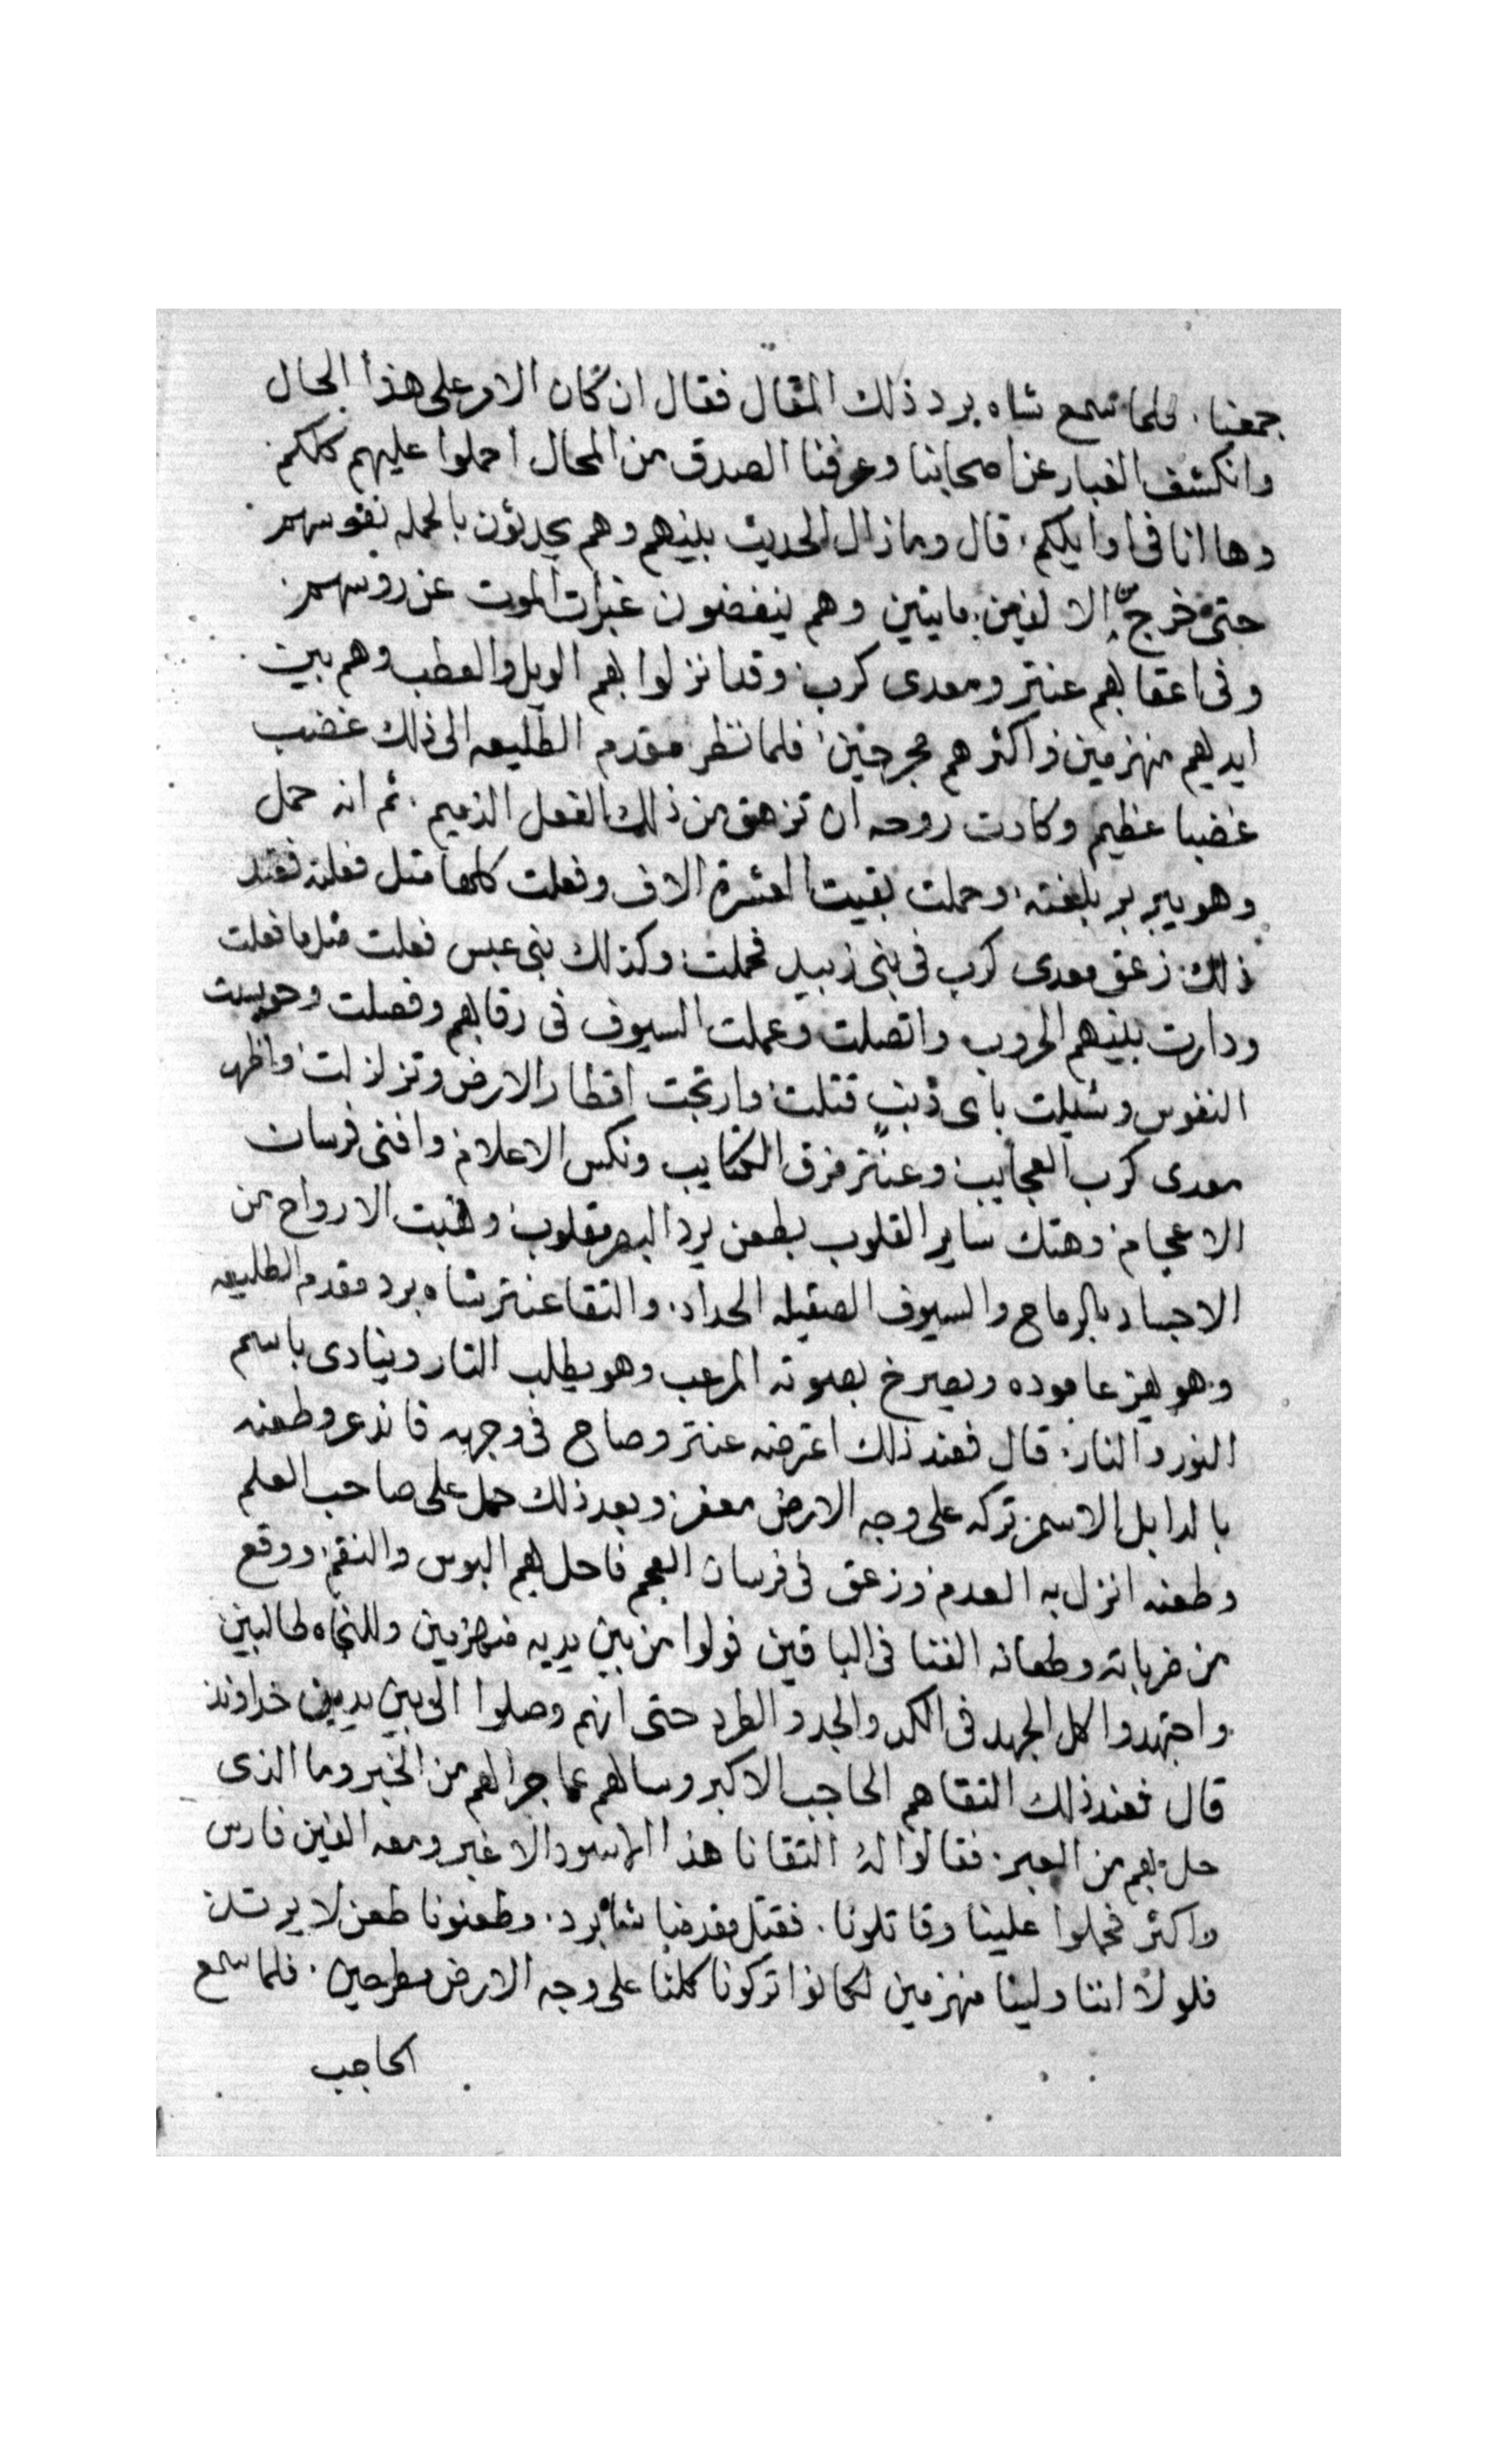 جمعنا. فلما سمع شاه برد ذلك المقال فقال ان كان الامر على هذا الحال
وانكشف الغبار عن اصحابنا وعرفنا الصدق من المحال احملوا عليهم كلكم
وها انا في اوايلكم. قال وما زال الحديث بينهم وهم يحدثون بالحمله نفوسهم
حتى خرج الالفين مايتين وهم ينفضون غبرات الموت عن روسهم
وفي اعقابهم عنتر ومعدي كرب وقد انزلوا بهم الويل والعطب وهم بين
ايديهم منهزمين واكثرهم مجرحين فلما نظر مقدم الطليعه الى ذلك غضب
غضبا عظيم وكادت روحه ان تزهق من ذلك الفعل الذميم. ثم انه حمل
وهو يبربر بلغته وحملت بقيت العشرة الاف وفعلت كلها مثل فعلته فعند
ذلك زعق معدي كرب في بني زبيد فحملت وكذلك بني عبس فعلت مثلما فعلت
ودارت بينهم الحروب واتصلت وعملت السيوف في رقابهم وفصلت وحوسبت
النفوس وسيلت باي ذنب قتلت وارتجت اقطار الارض وتزلزلت واظهر
معدي كرب العجايب وعنتر فرق الكتايب ونكس الاعلام وافنى فرسان
الاعجام وهتك ساير القلوب بطعن يرد البصر مقلوب ونهبت الارواح من
الاجساد بالرماح والسيوف الصقيله الحداد. والتقا عنتر شاه برد مقدم الطليعه
وهو يهز عاموده ويصرخ بصوته المرعب وهو يطلب التار وينادي باسم
النور والنار. قال فعند ذلك اعترضه عنتر وصاح في وجهه فانذعر وطعنه
بالدابل الاسمر تركه على وجه الارض معفر وبعد ذلك حمل على صاحب العلم
وطعنه انزل به العدم وزعق في فرسان العجم فاحل بهم البوس والنقم ووقع
من ضرباته وطعناته الفنا في الباقين فولوا من بين يديه منهزمين وللنجاه طالبين
واجتهدوا كل الجهد في الكد والجد والطرد حتى انهم وصلوا الى بين يدين خداوند
قال فعند ذلك التقاهم الحاجب الاكبر وسالهم عما جرا لهم من الخبر وما الذي
حل بهم من العبر. فقالوا له التقانا هذا الاسود الاغبر ومعه الفين فارس
واكثر فحملوا علينا وقاتلونا. فقتل مقدمنا شاه برد. وطعنونا طعن لا يرد
فلولا اننا ولينا منهزمين لكانوا تركونا كلنا على وجه الارض مطرحين. فلما سمع
الحاجب